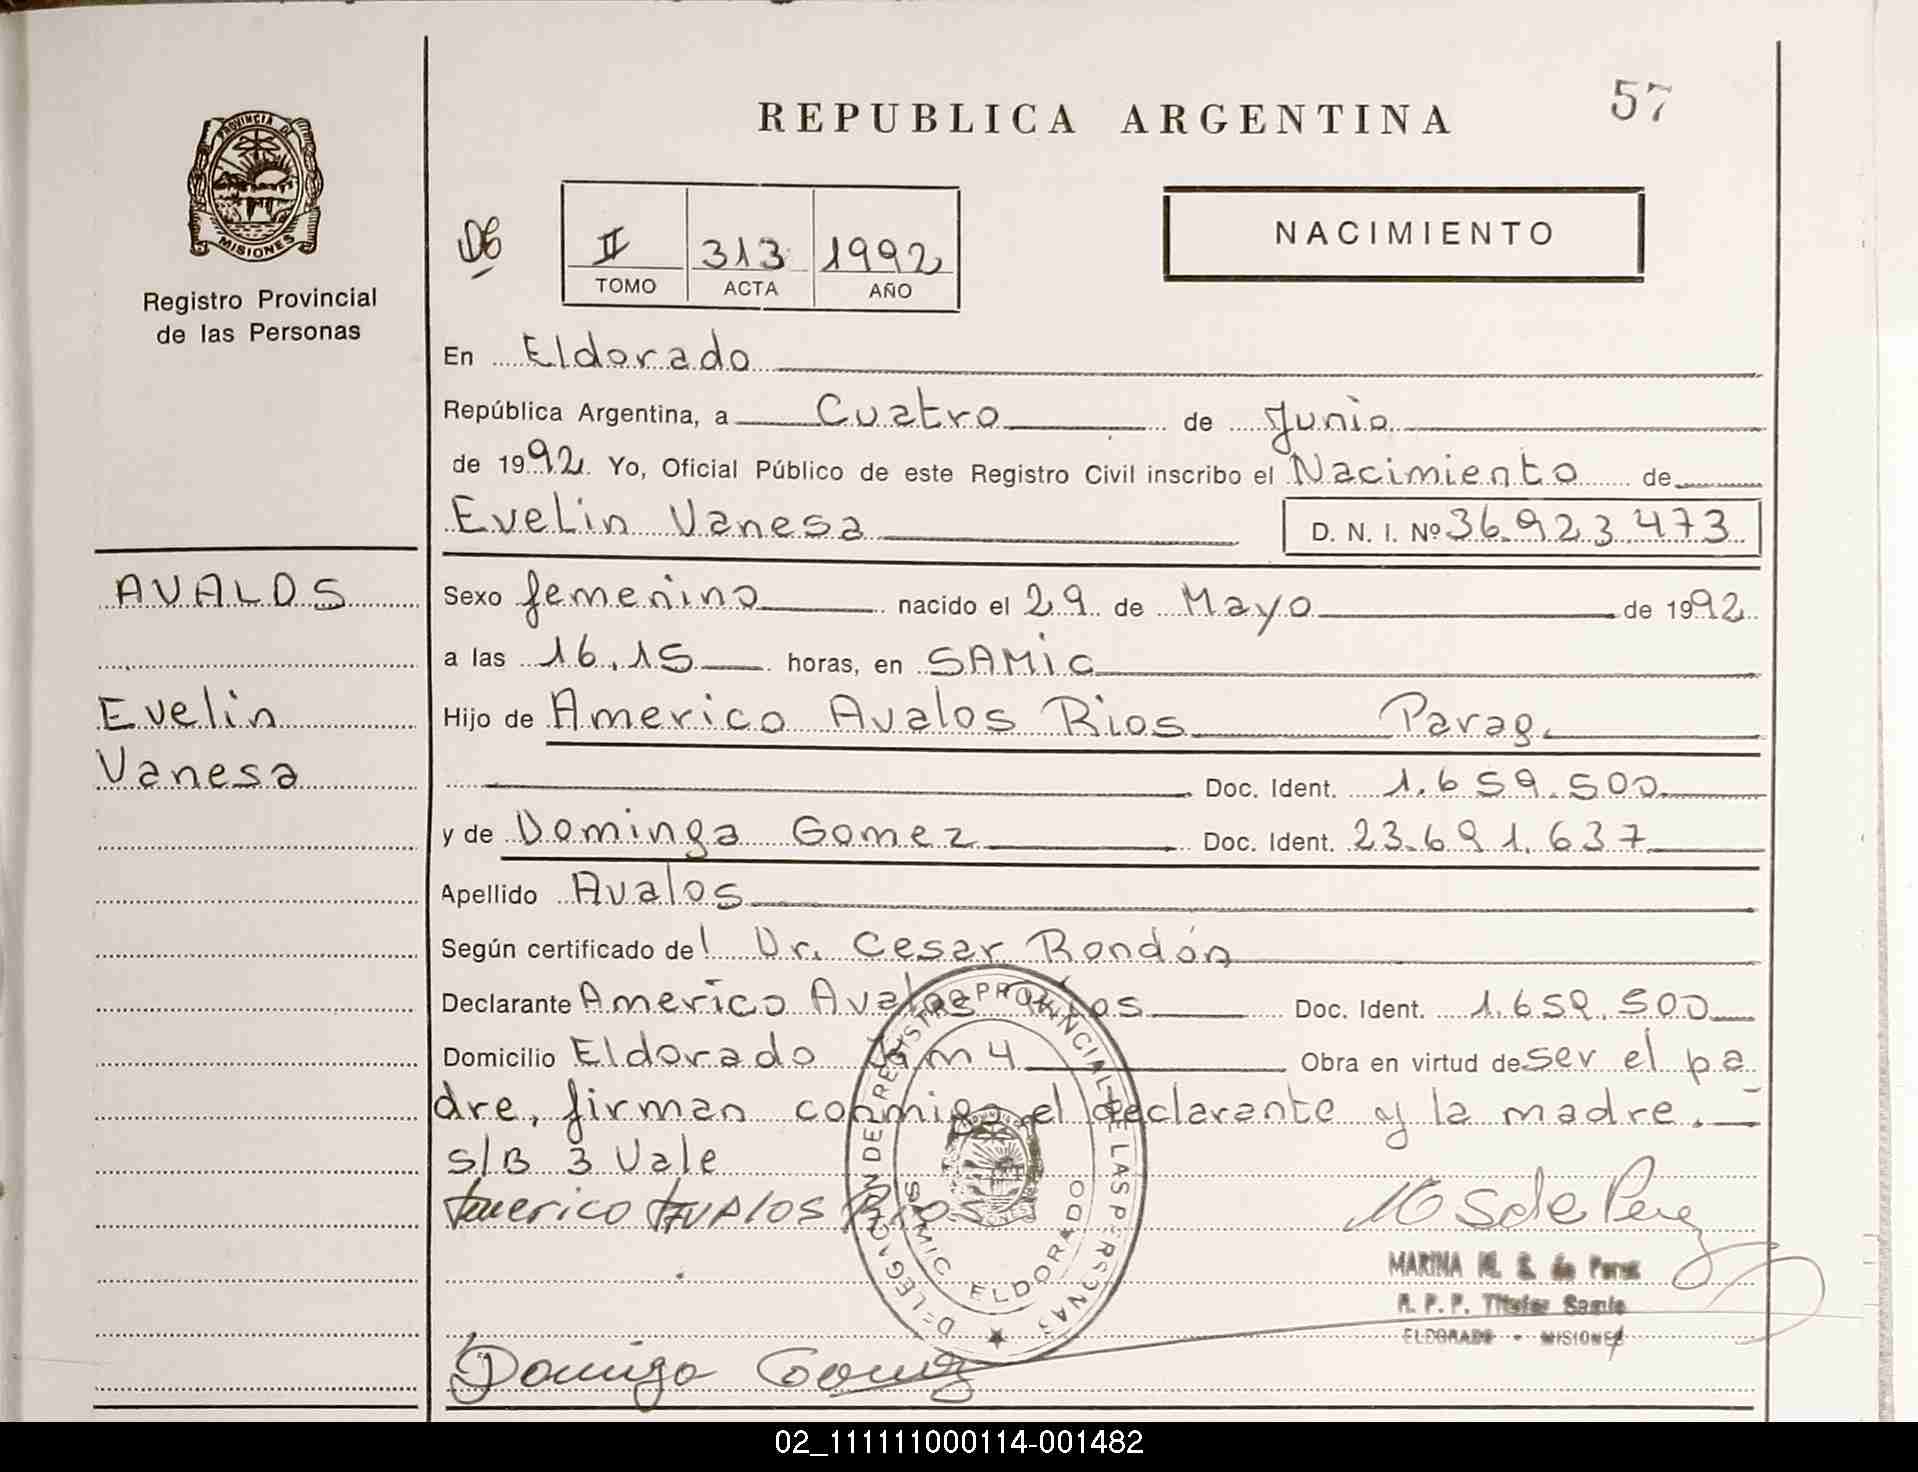 57
REPUBLICA ARGENTINA
PROVINCIA DE
MISIONES
Registro Provincial
de las Personas
II 313 1992
TOMO ACTA AÑO
NACIMIENTO
En Eldorado
República Argentina, a Cuatro de Junio
de 1992. Yo, Oficial Público de este Registro Civil inscribo el Nacimiento de
Evelin Vanesa D. N. I. Nº 36.923.473
AVALOS
Sexo femenino nacido el 29 de Mayo de 1992
a las 16,15 horas, en SAMIC
Evelin
Hijo de Americo Avalos Rios Parag.
Vanesa
Doc. Ident. 1.659.500
y de Dominga Gomez Doc. Ident. 23.691.637
Apellido Avalos
Según certificado del Dr. Cesar Rondón
Declarante Americo Avalos Rios Doc. Ident. 1.659.500
Domicilio Eldorado Km 4 Obra en virtud de ser el pa
dre, firman conmigo el declarante y la madre.-
s/B 3 Vale
Americo AVAlOS Rios
DELEGACION DEL REGISTRO PROVINCIAL DE LAS PERSONAS
SAMIC ELDORADO
MARINA M. S. de Perez
R. P. P. Titular Samic
ELDORADO - MISIONES
Dominga Gomez
02_111111000114-001482